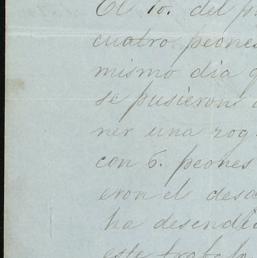 El 1o. del p
cuatro peones
mismo dia q
se pusieron a
ner una rog
con 6. peones
eron el desc
ha desendi
este trabajo